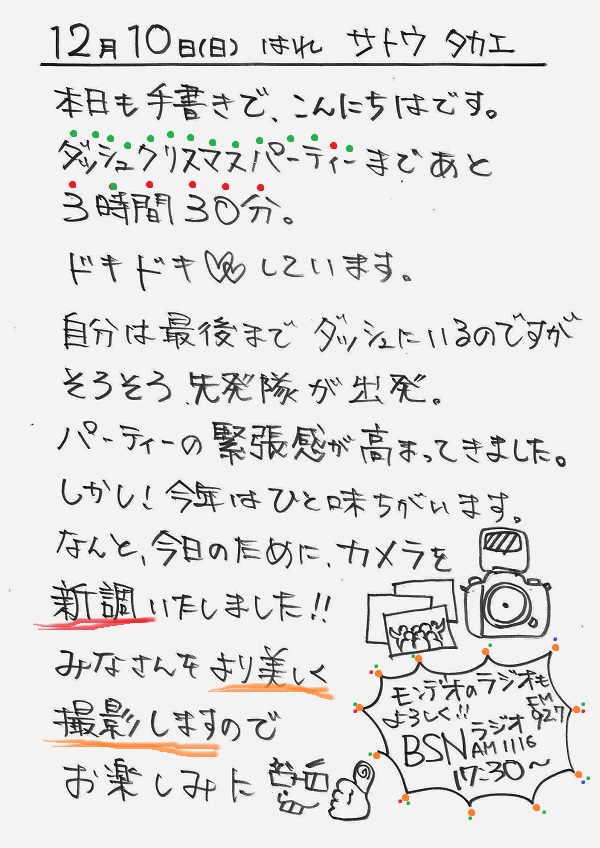 12月10日(日) はれ サトウ タカエ
本日も手書きで、こんにちはです。
ダッシュクリスマスパーティーまであと
3時間30分。
ドキドキしています。
自分は最後までダッシュにいるのですが
そろそろ先発隊が出発。
パーティーの緊張感が高まってきました。
しかし!今年はひと味ちがいます。
なんと、今日のために、カメラを
新調いたしました!!
みなさんをより美しく
撮影しますので
お楽しみに
モンデオのラジオも
よろしく!!
FM
92.7
BSNラジオ
AM1116
17:30〜